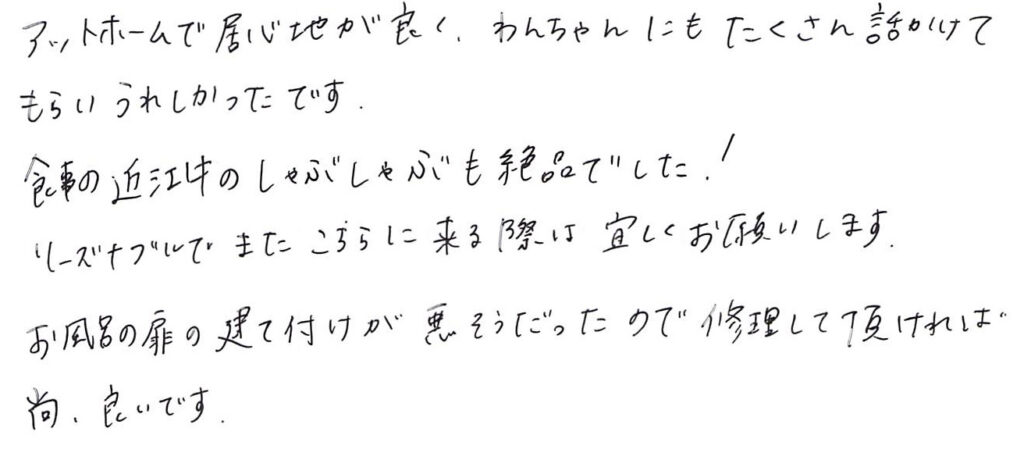 アットホームで居心地が良く、わんちゃんにもたくさん話かけて
もらいうれしかったです.
食事の近江牛のしゃぶしゃぶも絶品でした!
リーズナブルでまたこちらに来る際は宜しくお願いします.
お風呂の扉の建て付けが悪そうだったので修理して頂ければ
尚、良いです.